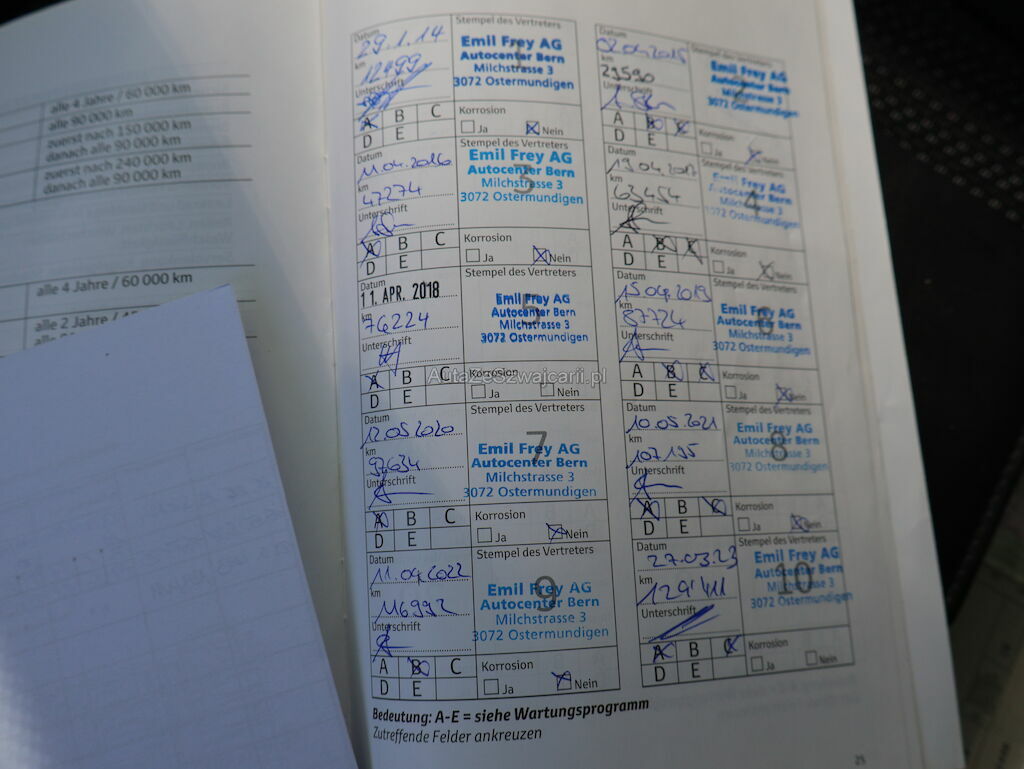 alle 4 Jahre / 60 000 km
alle 90 000 km
zuerst nach 150 000 km
danach alle 90 000 km
zuerst nach 240 000 km
danach alle 90 000 km
alle 4 Jahre / 60 000 km
alle 2 Jahre /
Datum
29.1.14
km
12499
Unterschrift
Stempel des Vertreters
1
Emil Frey AG
Autocenter Bern
Milchstrasse 3
3072 Ostermundigen
A B C
D E
Korrosion
Ja Nein
02.04.2015
km
29590
Unterschrift
Stempel des Vertreters
2
Emil Frey AG
Autocenter Bern
Milchstrasse 3
3072 Ostermundigen
A B C
D E
Korrosion
Ja Nein
Datum
11.04.2016
km
47274
Unterschrift
Stempel des Vertreters
3
Emil Frey AG
Autocenter Bern
Milchstrasse 3
3072 Ostermundigen
A B C
D E
Korrosion
Ja Nein
Datum
19.04.2017
km
63454
Unterschrift
Stempel des Vertreters
4
Emil Frey AG
Autocenter Bern
Milchstrasse 3
3072 Ostermundigen
A B C
D E
Korrosion
Ja Nein
Datum
11. APR. 2018
km
76224
Unterschrift
Stempel des Vertreters
5
Emil Frey AG
Autocenter Bern
Milchstrasse 3
3072 Ostermundigen
A B C
D E
Korrosion
Ja Nein
Datum
15.04.2019
km
87724
Unterschrift
Stempel des Vertreters
6
Emil Frey AG
Autocenter Bern
Milchstrasse 3
3072 Ostermundigen
A B C
D E
Korrosion
Ja Nein
AutazeSzwajcarii.pl
Datum
12.05.2020
km
97634
Unterschrift
Stempel des Vertreters
7
Emil Frey AG
Autocenter Bern
Milchstrasse 3
3072 Ostermundigen
A B C
D E
Korrosion
Ja Nein
Datum
10.05.2021
km
107195
Unterschrift
Stempel des Vertreters
8
Emil Frey AG
Autocenter Bern
Milchstrasse 3
3072 Ostermundigen
A B C
D E
Korrosion
Ja Nein
Datum
11.04.2022
km
116992
Unterschrift
Stempel des Vertreters
9
Emil Frey AG
Autocenter Bern
Milchstrasse 3
3072 Ostermundigen
A B C
D E
Korrosion
Ja Nein
Datum
27.03.23
km
129'411
Unterschrift
Stempel des Vertreters
10
Emil Frey AG
Autocenter Bern
Milchstrasse 3
3072 Ostermundigen
A B C
D E
Korrosion
Ja Nein
Bedeutung: A-E = siehe Wartungsprogramm
Zutreffende Felder ankreuzen
25